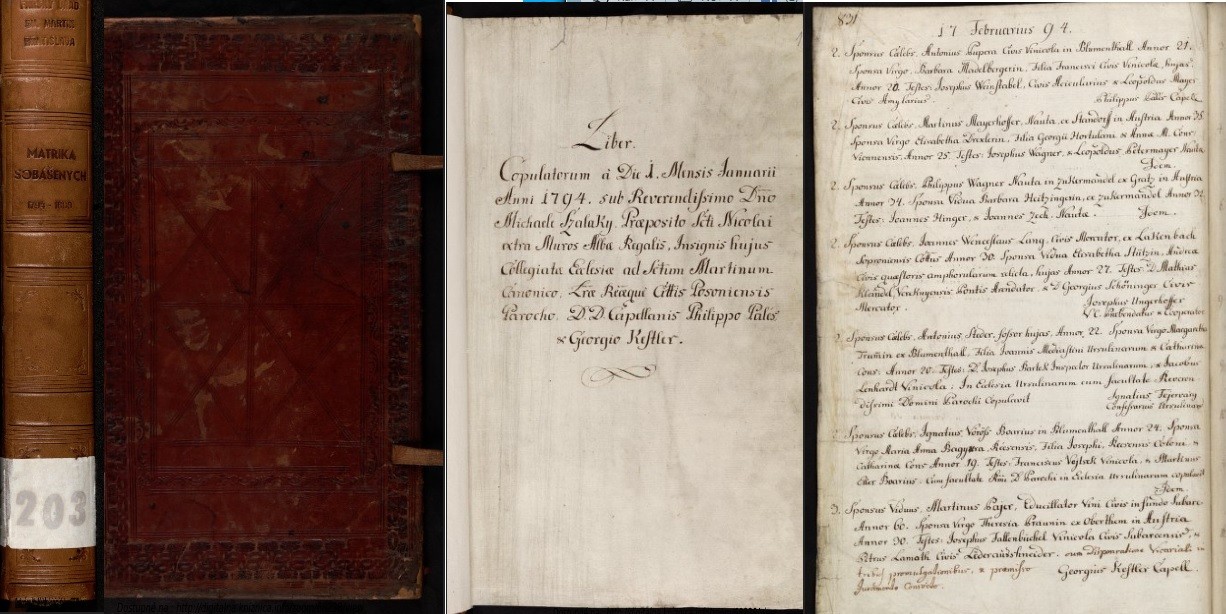 SV. MARTIN
BRATISLAVA
MATRIKA
SOBÁŠENÝCH
203
Liber.
Copulatorum à Die 1. Mensis Januarii
Anni 1794. sub Reverendissimo Dn̄o
Michaele Szalaky. Præposito Scti Nicolai
extra Muros Albæ Regalis, Insignis hujus
Collegiatæ Eclesiæ ad Sctum Martinum
Canonico, Lræ Rææque Cittis Posoniensis
Parocho. D.D. Capellanis Philippo Palés
& Georgio Kestler.
17 Februarius 94.
2. Sponsus Cælebs, Antonius Rupera Civis Vinicola in Blumenthall Annor 21.
Sponsa Virgo, Barbara Madelbergerin, Filia Francisci Civis Vinicolæ, hujas
Annor 20. Testes: Josephus Weinstabel, Civis Acicularius & Leopoldus Mayer
Civis Amylarius.
Philippus Palés Capell.
2. Sponsus Cælebs, Martinus Mayerhoffer, Nauta, ex Standorff in Austria Annor 35.
Sponsa Virgo Elisabetha Drexlerin, Filia Georgii Hortulani & Annæ M. Cons:
Viennensis, Annor 25. Testes: Josephus Wagner, & Leopoldus Petermayer Nautæ
Idem.
2. Sponsus Cælebs, Philippus Wagner Nauta in Zukermandel ex Gratz in Austria
Annor 34. Sponsa Vidua Barbara Heitzingerin, ex Zukermandel Annor 32.
Testes: Joannes Hinger, & Joannes Zech. Nautæ.
Idem.
2. Sponsus Cælebs, Joannes Wenceslaus Lang, Civis Mercator, ex Lakenbach
Soproniensis Cottus Annor 30. Sponsa Vidua Elisabetha Stützin, Andreæ
Civis quæstoris amphorularum relicta, hujas Annor 27. Testes: D. Mathias
Kleindel, Pontis Mandator, & D Georgius Schöninger Civis
Mercator.
Josephus Ungerhoffer
VC. Præbendatus & Cooperator
2. Sponsus Cælebs, Antonius Studer, fossor hujas, Annor 22. Sponsa Virgo Margaretha
ex Blumenthall, Filia Joannis Mediastini Ursulinarum & Catharinæ
Cons: Annor 20. Testes: D. Josephus Bartek Inspector Ursulinarum, & Jacobus
Lenhardt Vinicola: In Eclesia Ursulinarum cum facultate Reveren
dissimi Domini Parochi Copulavit
Ignatius Fejervary
Confessarius Ursulinar
2. Sponsus Cælebs, Ignatius Vöröss Boarius in Blumenthall Annor 24. Sponsa
Virgo Maria Anna Bagyura, Récsensis, Filia Josephi, Récsensis Coloni &
Catharinæ Cons Annor 19. Testes: Franciscus Vojtech Vinicola, & Martinus
Boarius: Cum facultate Rmi D. Parochi in Eclesia Ursulinarum copulavit
Idem.
3. Sponsus Viduus, Martinus Pajer, Educillator Vini Civis in fundo Subarc
Annor 60. Sponsa Virgo Theresia Braunin ex Oberthem in Austria
Annor 30. Testes: Josephus Fallenbüchel Vinicola Civis Subarcensis, &
Petrus Lamoth Civis Lederausschneider, cum Dispensatione Vicariali in
tribus promulgationibus, & præmisso
Juramento
Georgius Kestler Capell.